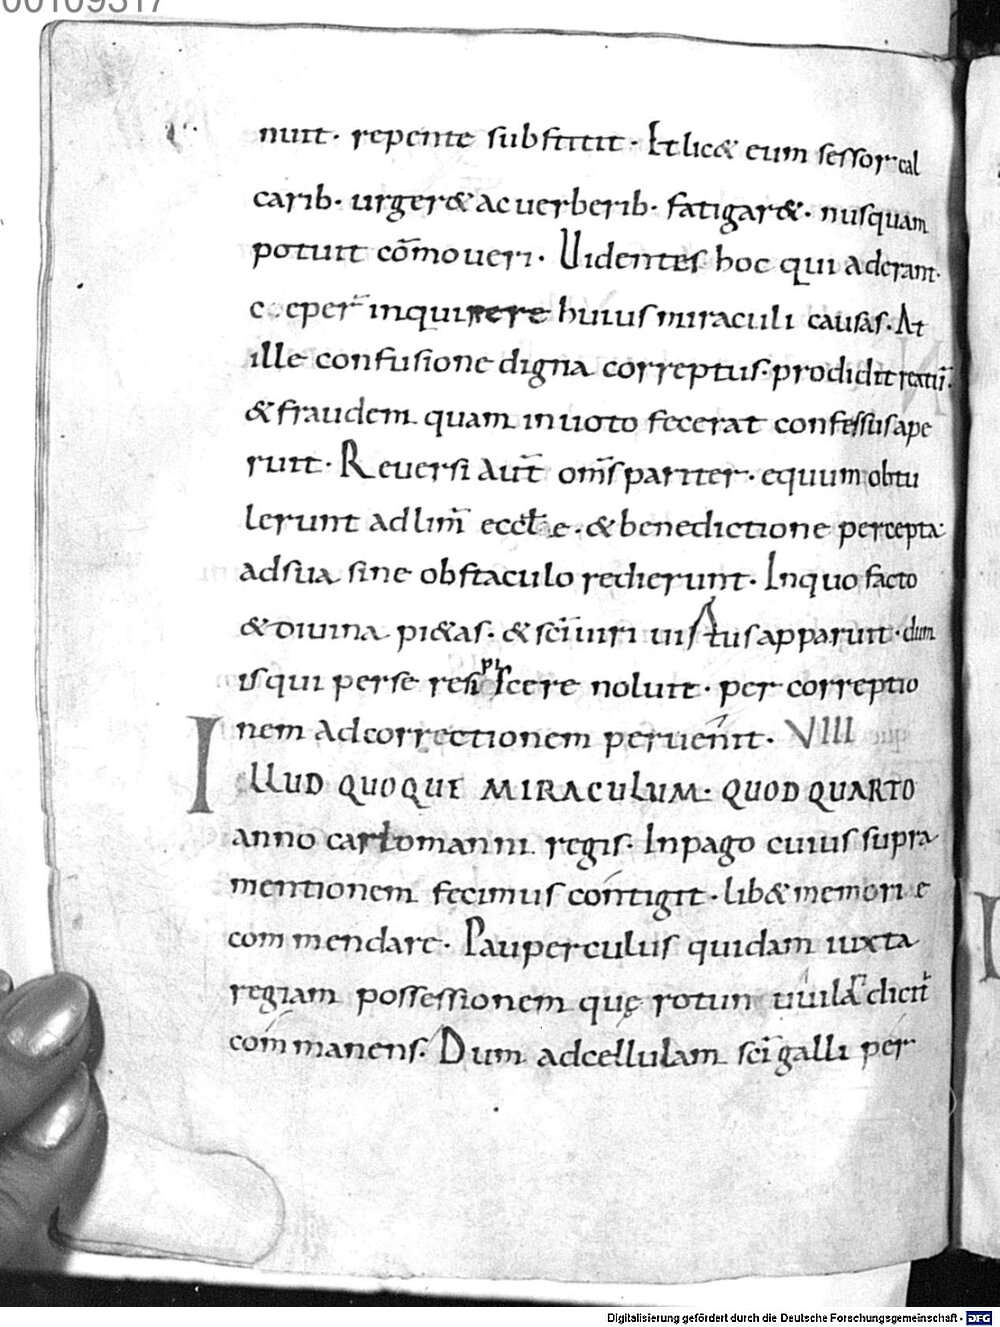 00109317
nuit· repente substitit· Et lic& eum sessor cal
carib· urger& ac uerberib· fatigar&· nusquam
potuit cōmoueri· Uidentes hoc qui aderant·
coeper̄ inquirere huius miraculi causas· At
ille confusione digna correptus· prodidit reatū·
&fraudem quam in uoto fecerat confessus ape
ruit· Reuersi aut̄ om̄s pariter· equum obtu
lerunt ad lim̄ eccłae· & benedictione percepta·
ad sua sine obstaculo redierunt· In quo facto
& diuina pi&as· & sc̄i uiri uirtus apparuit· dum
is qui per se resipiscere noluit· per correptio
nem ad correctionem peruenit· VIIII
ILLUD QUOQUE MIRACULUM· QUOD QUARTO
anno carlomanni regis· In pago cuius supra
mentionem fecimus contigit· lib& memorie
commendare· Pauperculus quidam iuxta
regiam possessionem quę rotun uuila dicit̄
commanens· Dum ad cellulam sc̄i galli per
Digitalisierung gefördert durch die Deutsche Forschungsgemeinschaft - DFG